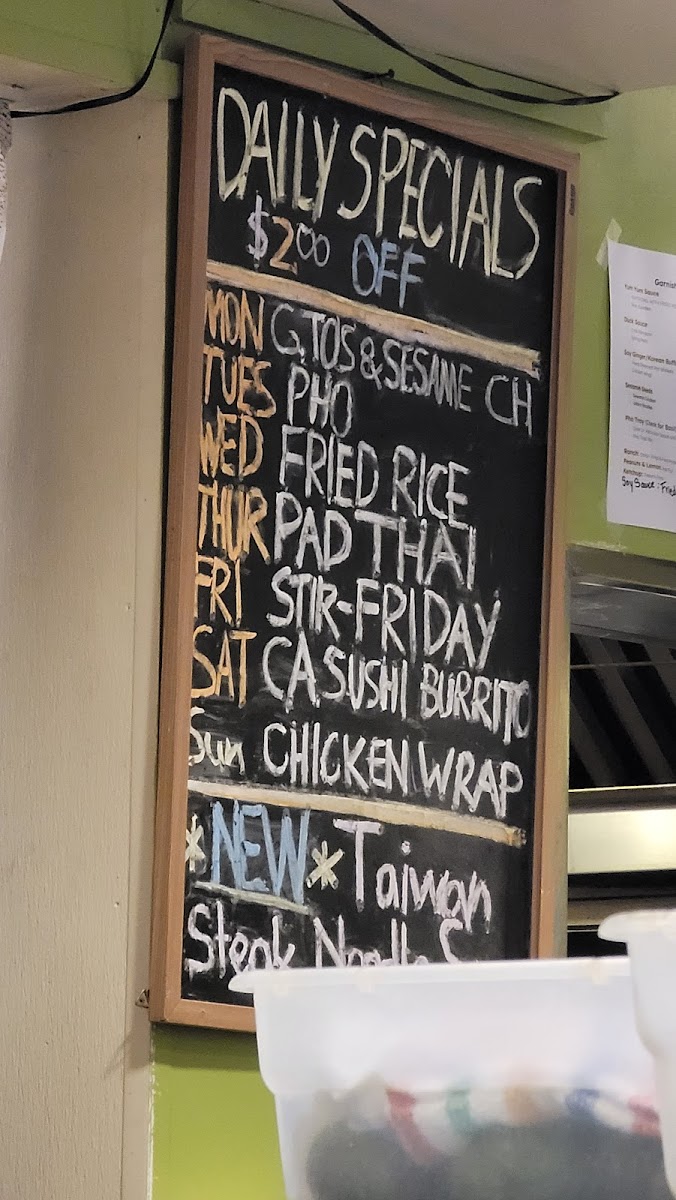 DAILY SPECIALS
$2.00 OFF
MON G.TOS & SESAME CH
TUES PHO
WED FRIED RICE
THUR PAD THAI
FRI STIR-FRIDAY
SAT CA. SUSHI BURRITO
Sun CHICKEN WRAP
*NEW* Taiwan
Steak Noodle S
Garnish
Yum Yum Sauce
Duck Sauce
Soy Ginger/Korean Buff
Sesame Seeds
Pho Tray
Ranch:
Peanuts & Lemon:
Ketchup:
Soy Sauce: Fried